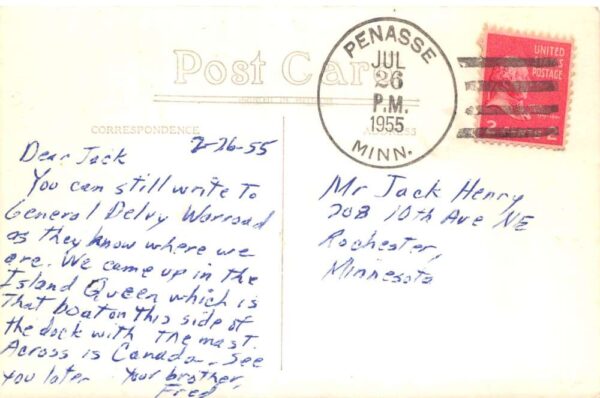 Post Card
CORRESPONDENCE
ADDRESS
PENASSE
JUL
26
P.M.
1955
MINN.
UNITED
STATES
POSTAGE
2 CENTS 2
7-26-55
Dear Jack
You can still write To
General Delvy Warroad
as they know where we
are. We came up in the
Island Queen which is
That boat on this side of
the dock with The mast.
Across is Canada. See
you later Your brother,
Fred
Mr Jack Henry
208 10th Ave NE
Rochester,
Minnesota